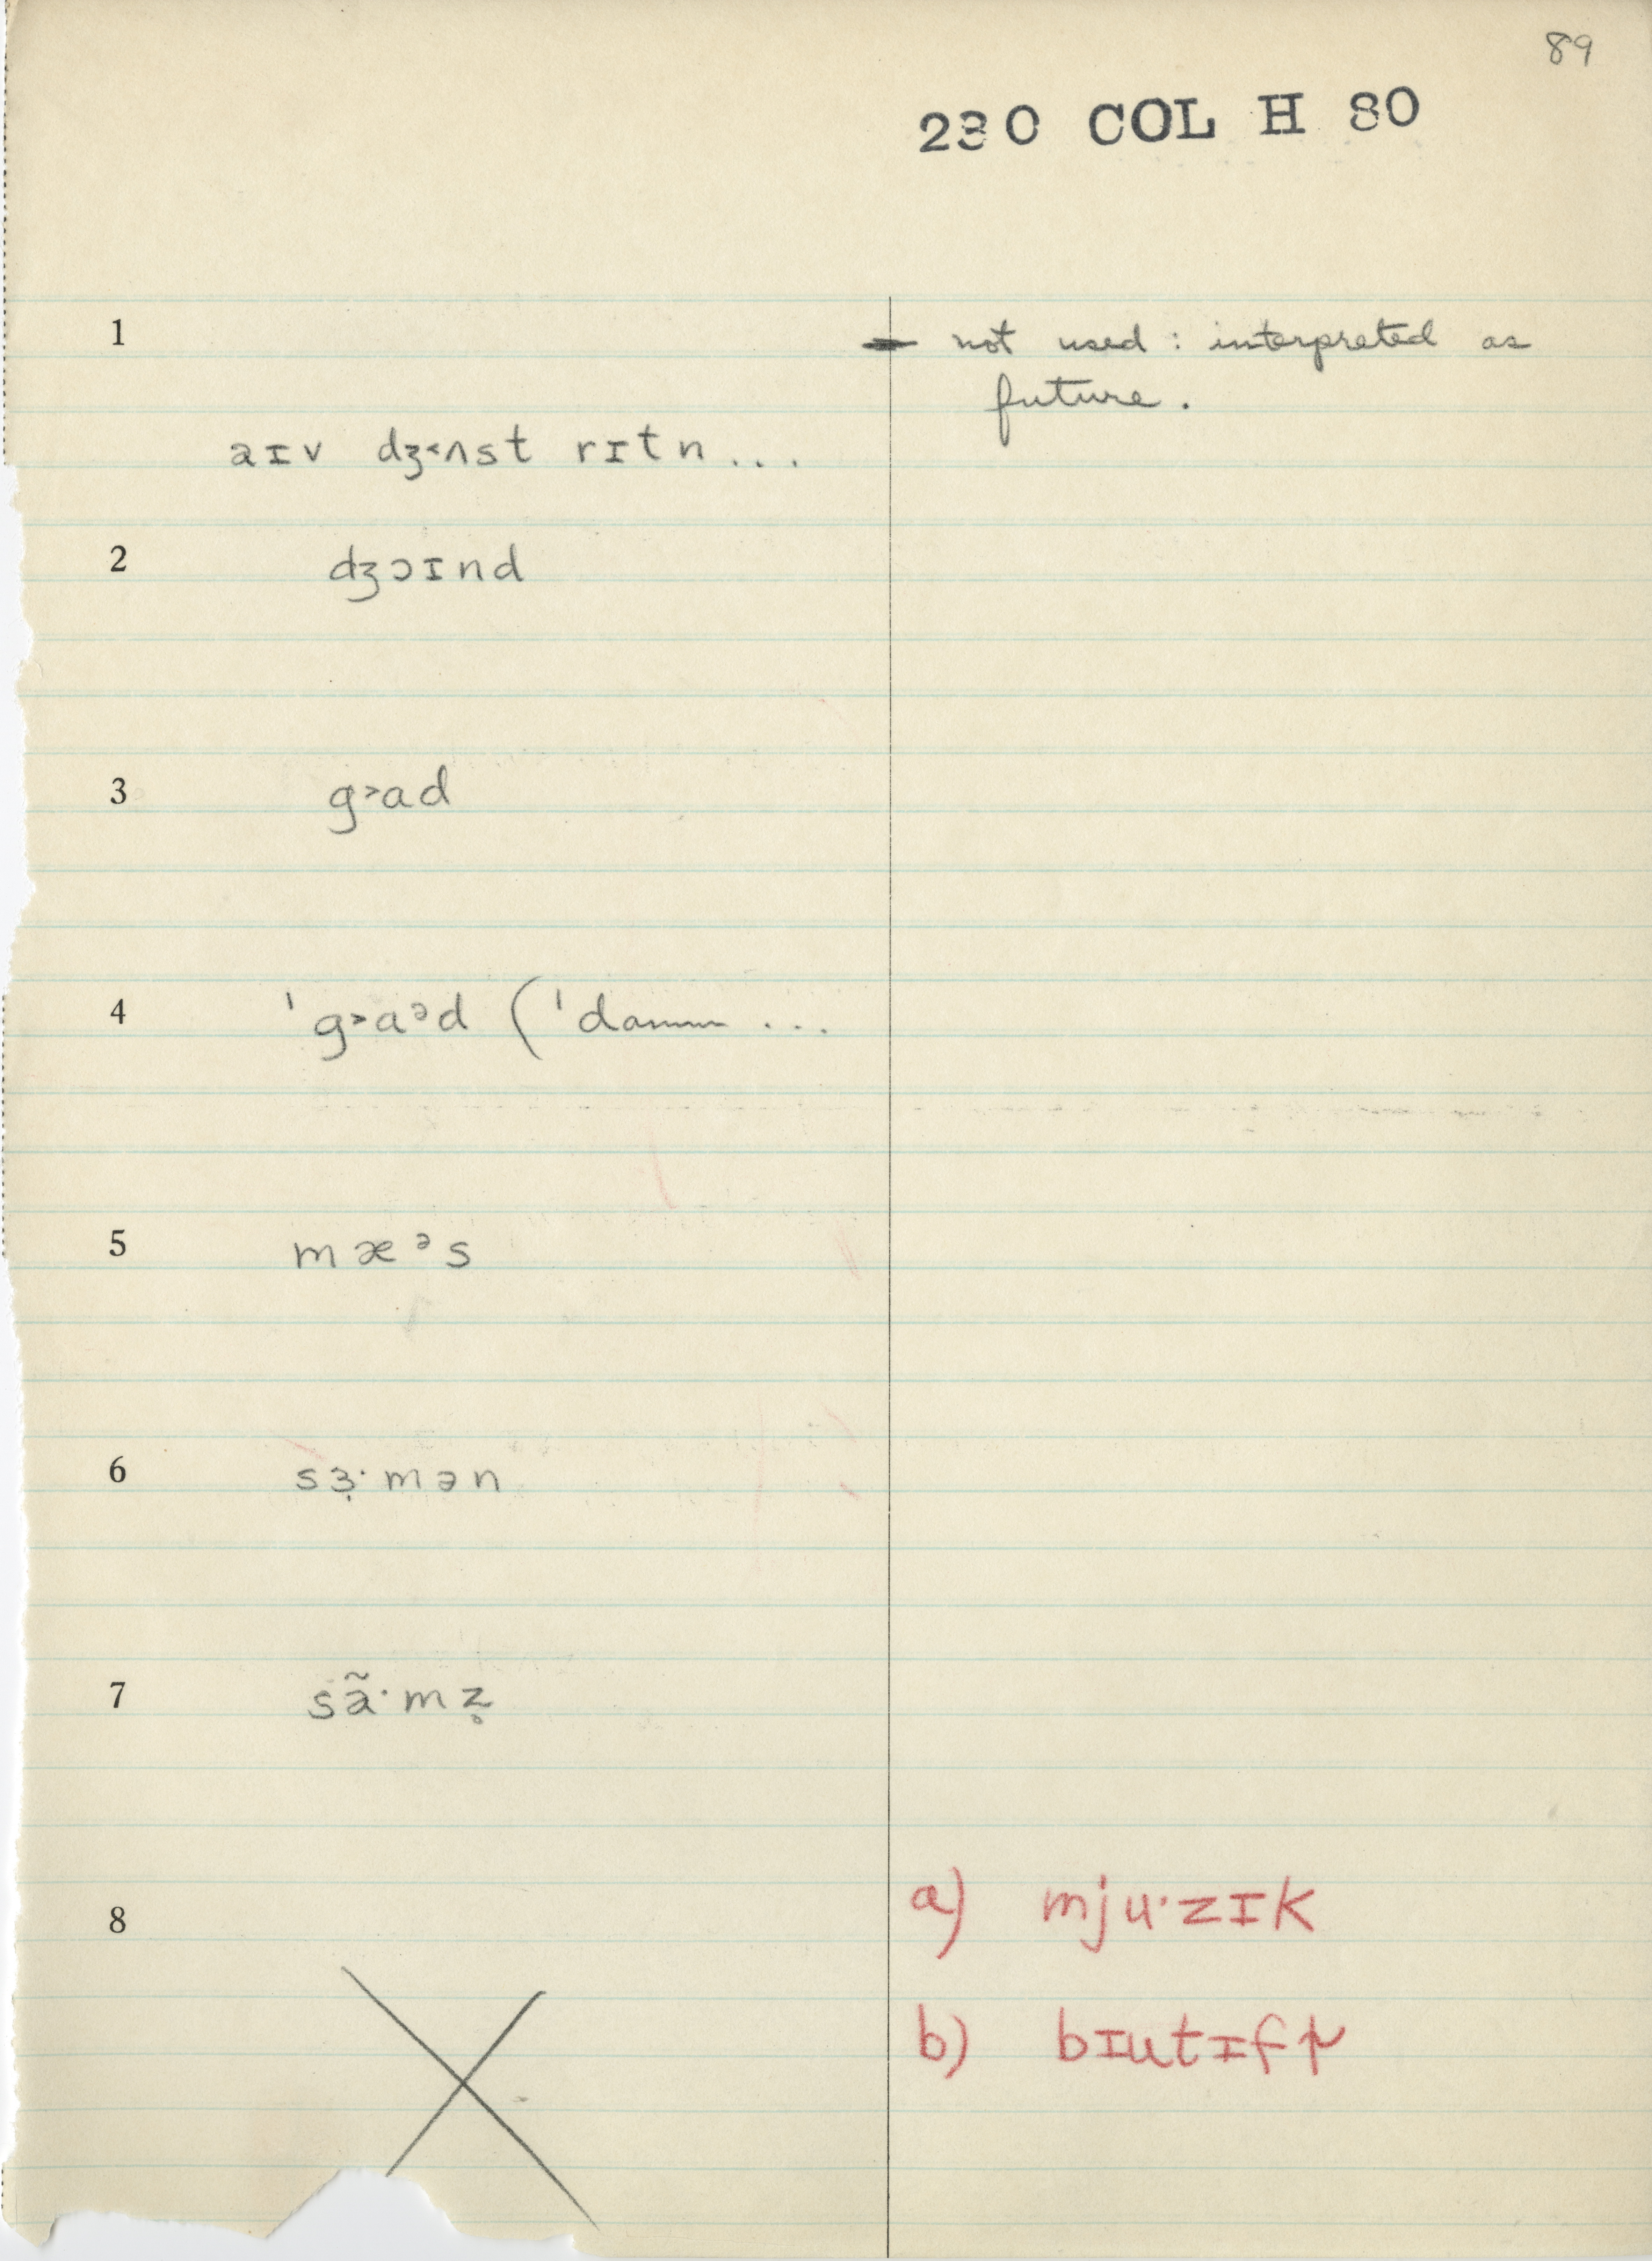 89
230 COL H 80
1
not used : interpreted as
future.
aɪv dʒ˂ʌst rɪtn...
2
dʒɔɪnd
3
g˃ad
4
ˈg˃aᵊd (ˈdamn ...
5
mæᵊs
6
sɜ̣·mən
7
sã·mz̥
8
a) mju·zɪk
b) bɪutɪfɫ